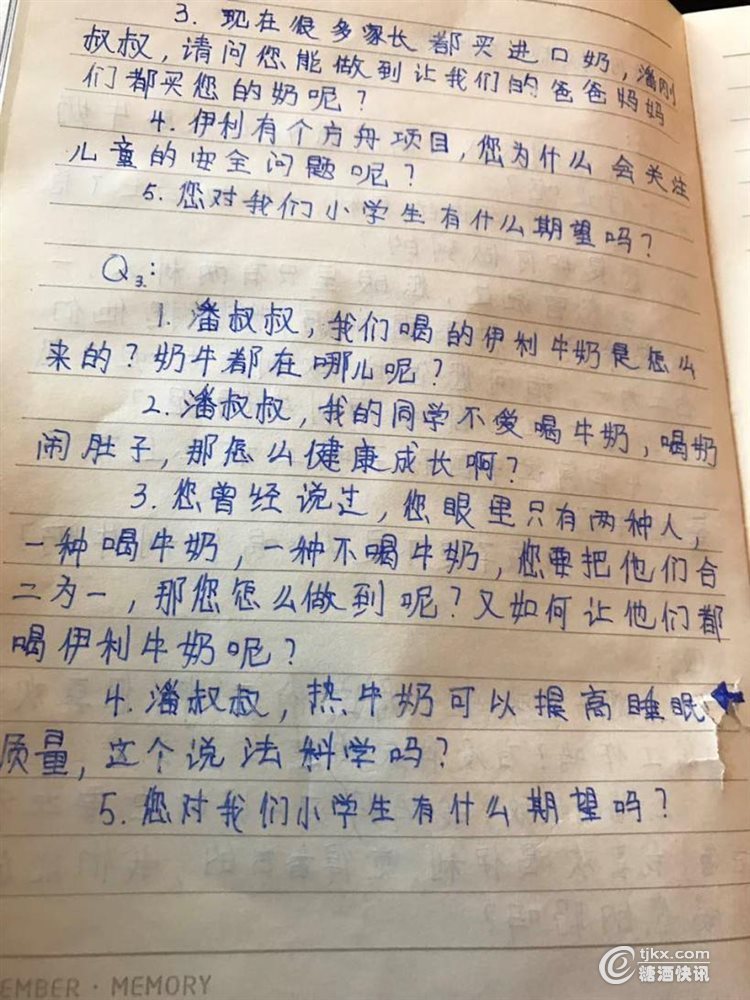 3. 现在很多家长都买进口奶，潘刚
叔叔，请问您能做到让我们的爸爸妈妈
们都买您的奶呢？
4. 伊利有个方舟项目，您为什么会关注
儿童的安全问题呢？
5. 您对我们小学生有什么期望吗？
Q3:
1. 潘叔叔，我们喝的伊利牛奶是怎么
来的？奶牛都在哪儿呢？
2. 潘叔叔，我的同学不爱喝牛奶，喝奶
闹肚子，那怎么健康成长啊？
3. 您曾经说过，您眼里只有两种人，
一种喝牛奶，一种不喝牛奶，您要把他们合
二为一，那您怎么做到呢？又如何让他们都
喝伊利牛奶呢？
4. 潘叔叔，热牛奶可以提高睡眠
质量，这个说法科学吗？
5. 您对我们小学生有什么期望吗？
EMBER · MEMORY
tjkx.com
糖酒快讯